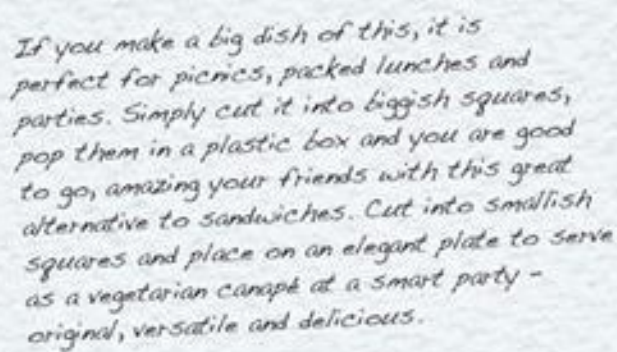 If you make a big dish of this, it is
perfect for picnics, packed lunches and
parties. Simply cut it into biggish squares,
pop them in a plastic box and you are good
to go, amazing your friends with this great
alternative to sandwiches. Cut into smallish
squares and place on an elegant plate to serve
as a vegetarian canapé at a smart party –
original, versatile and delicious.